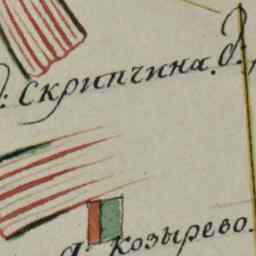 д: Скрипчина. д:
д: козырево.